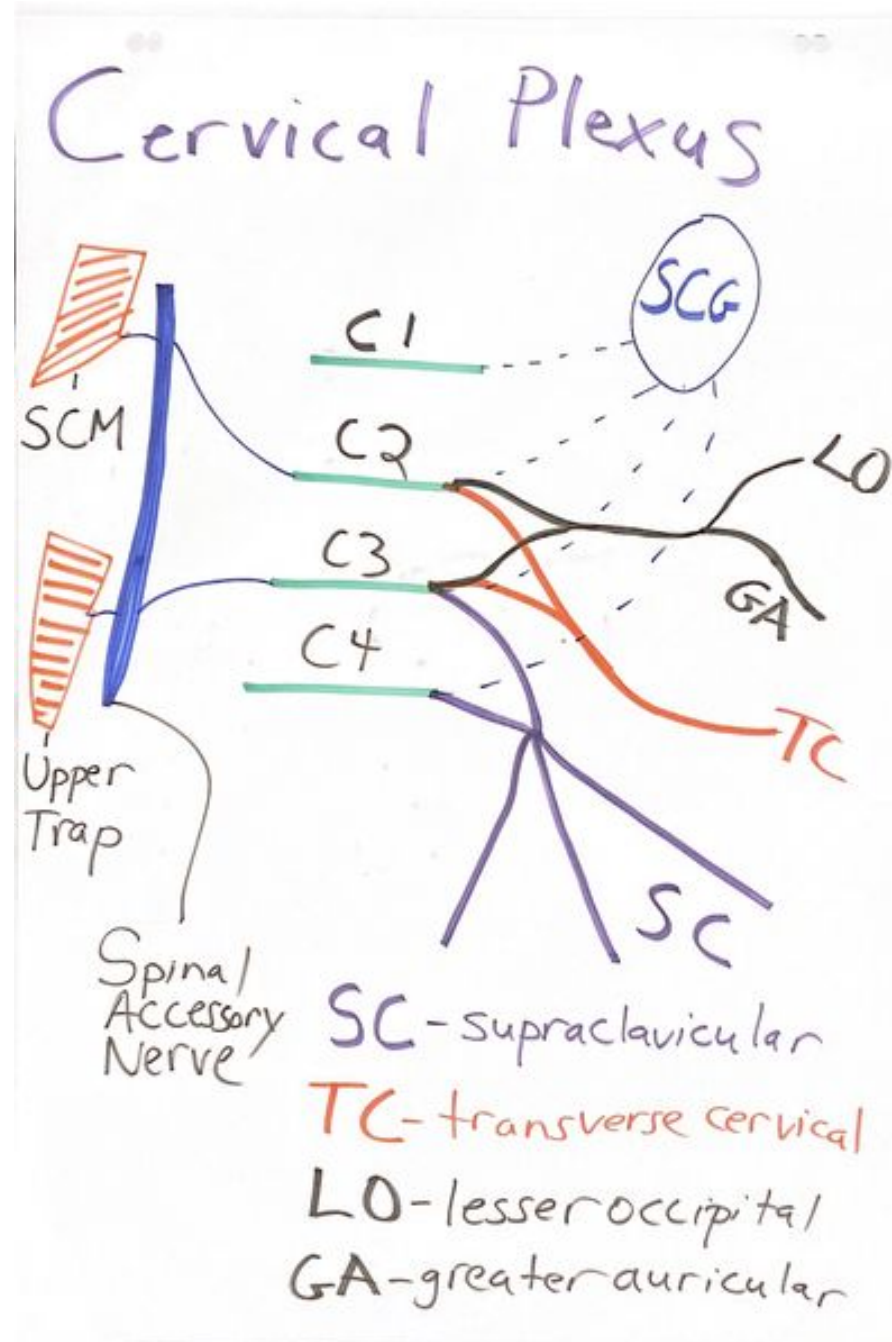 Cervical Plexus
SCG
C1
SCM
C2
LO
C3
GA
C4
TC
Upper
Trap
SC
Spinal
Accessory
Nerve
SC-supraclavicular
TC-transverse cervical
LO-lesser occipital
GA-greater auricular